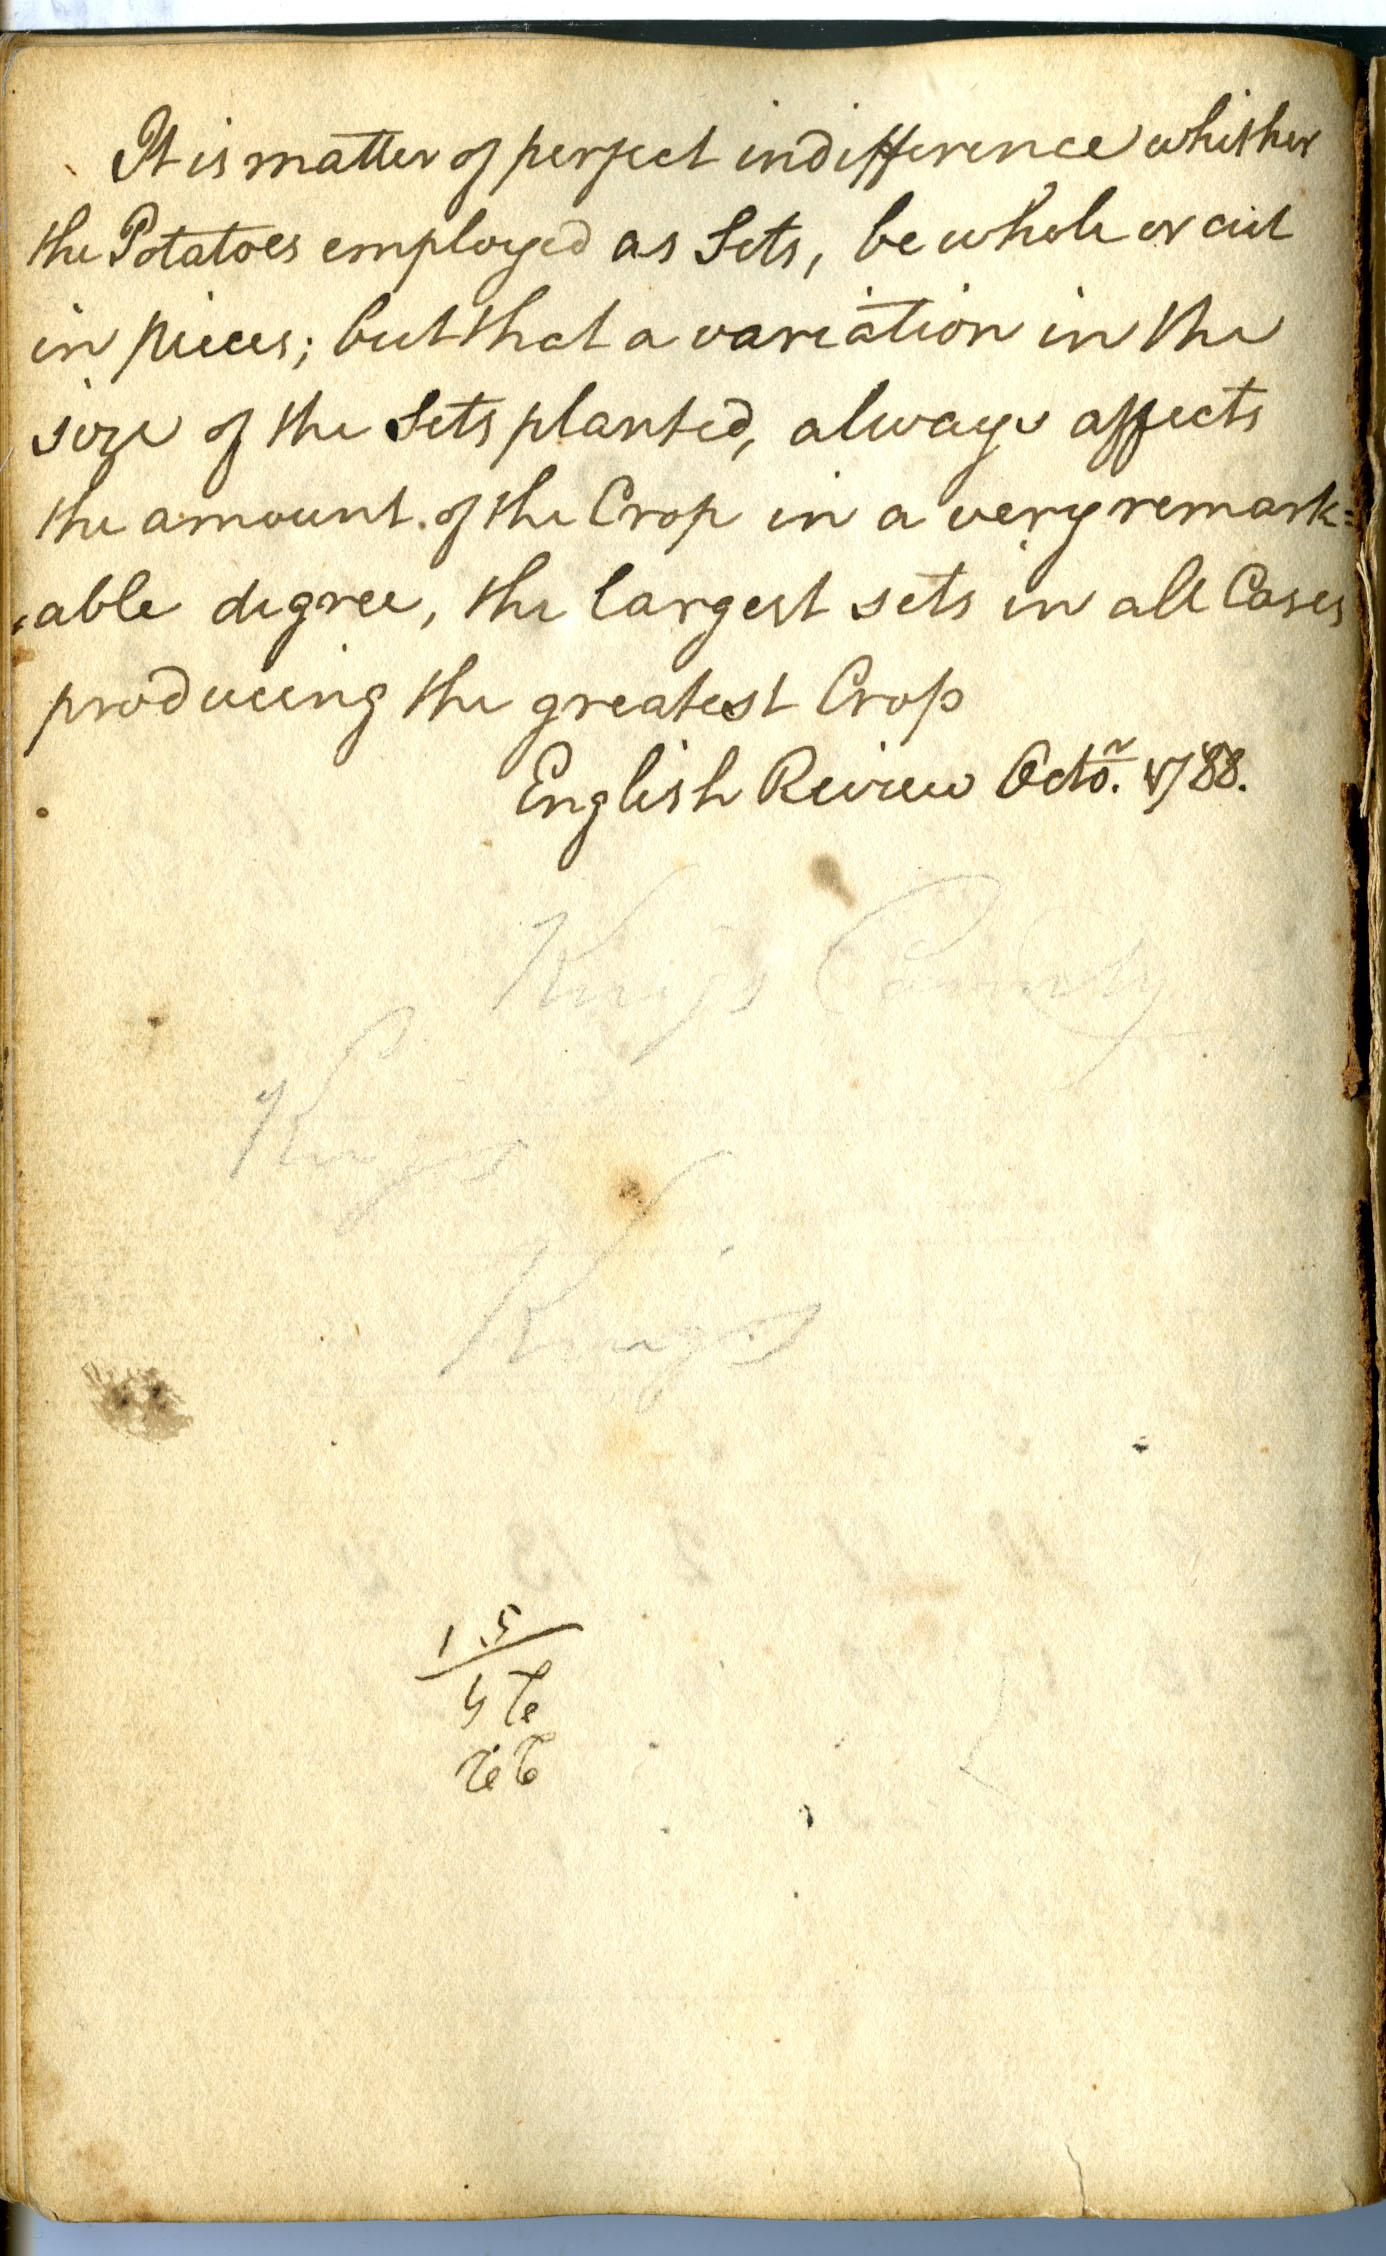 It is matter of perfect indifference whether
the Potatoes employed as Sets, be whole or cut
in pieces; but that a variation in the
size of the Sets planted, always affects
the amount of the Crop in a very remark=
=able degree, the largest sets in all Cases
producing the greatest Crop
English Review Octor. 1788.
Kings County
Kings
Kings
15